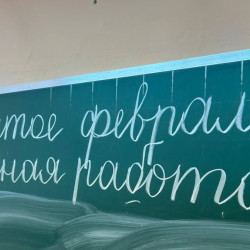 тое феврал
ная работа